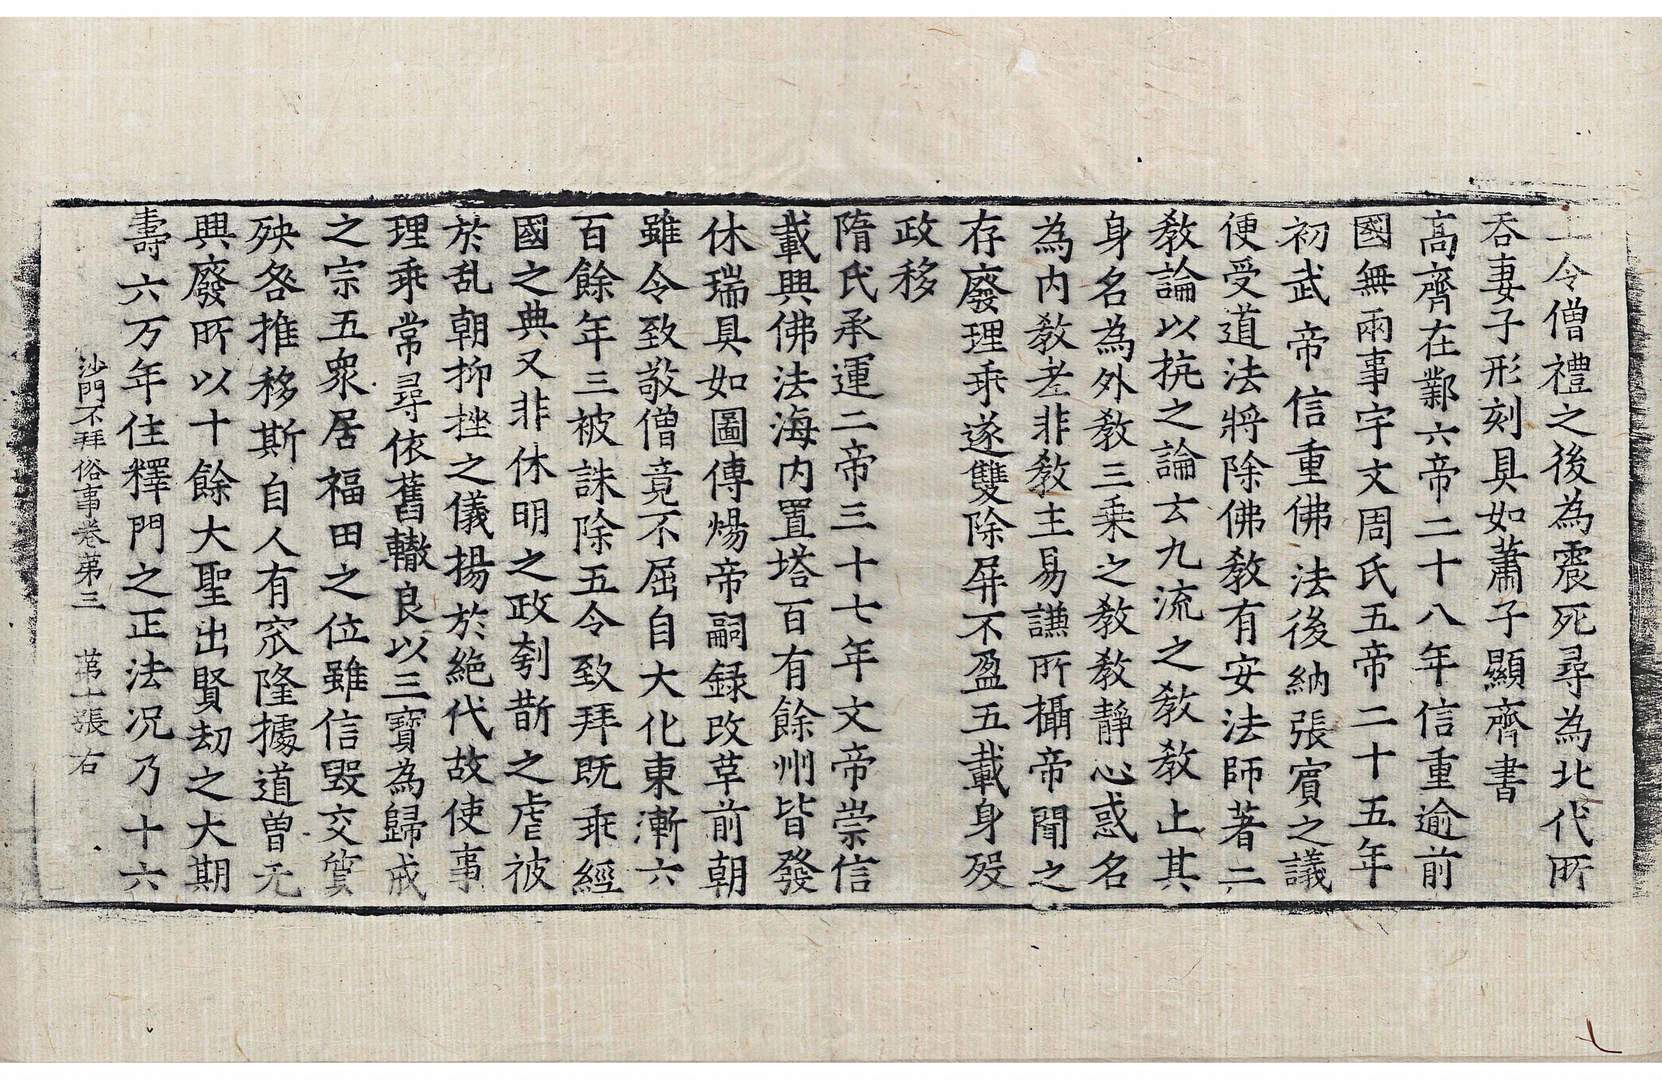 上令僧禮之後為震死尋為北代所
吞妻子形刻具如蕭子顯齊書
高齊在鄴六帝二十八年信重逾前
國無兩事宇文周氏五帝二十五年
初武帝信重佛法後納張賓之議
便受道法將除佛教有安法師著二
教論以抗之論云九流之教教止其
身名為外教三乗之教教靜心惑名
為内教老非教主易謙所攝帝聞之
存廢理乖遂雙除屏不盈五載身殁
政移
隋氏承運二帝三十七年文帝崇信
載興佛法海内置塔百有餘州皆發
休瑞具如圖傳煬帝嗣録改革前朝
雖令致敬僧竟不屈自大化東漸六
百餘年三被誅除五令致拜既乖經
國之典又非休明之政刳斮之虐被
於乱朝抑挫之儀揚於絶代故使事
理乖常尋依舊轍良以三寶為歸戒
之宗五衆居福田之位雖信毀交貿
殃咎推移斯自人有窊隆據道曽无
興廢所以十餘大聖出賢劫之大期
壽六万年住釋門之正法况乃十六
沙門不拜俗事卷第三 第七張 右